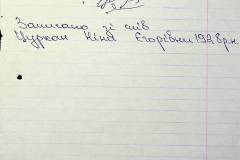 Записано зі слів
Цуркан Ніна Єгорівни 1928 р.н.